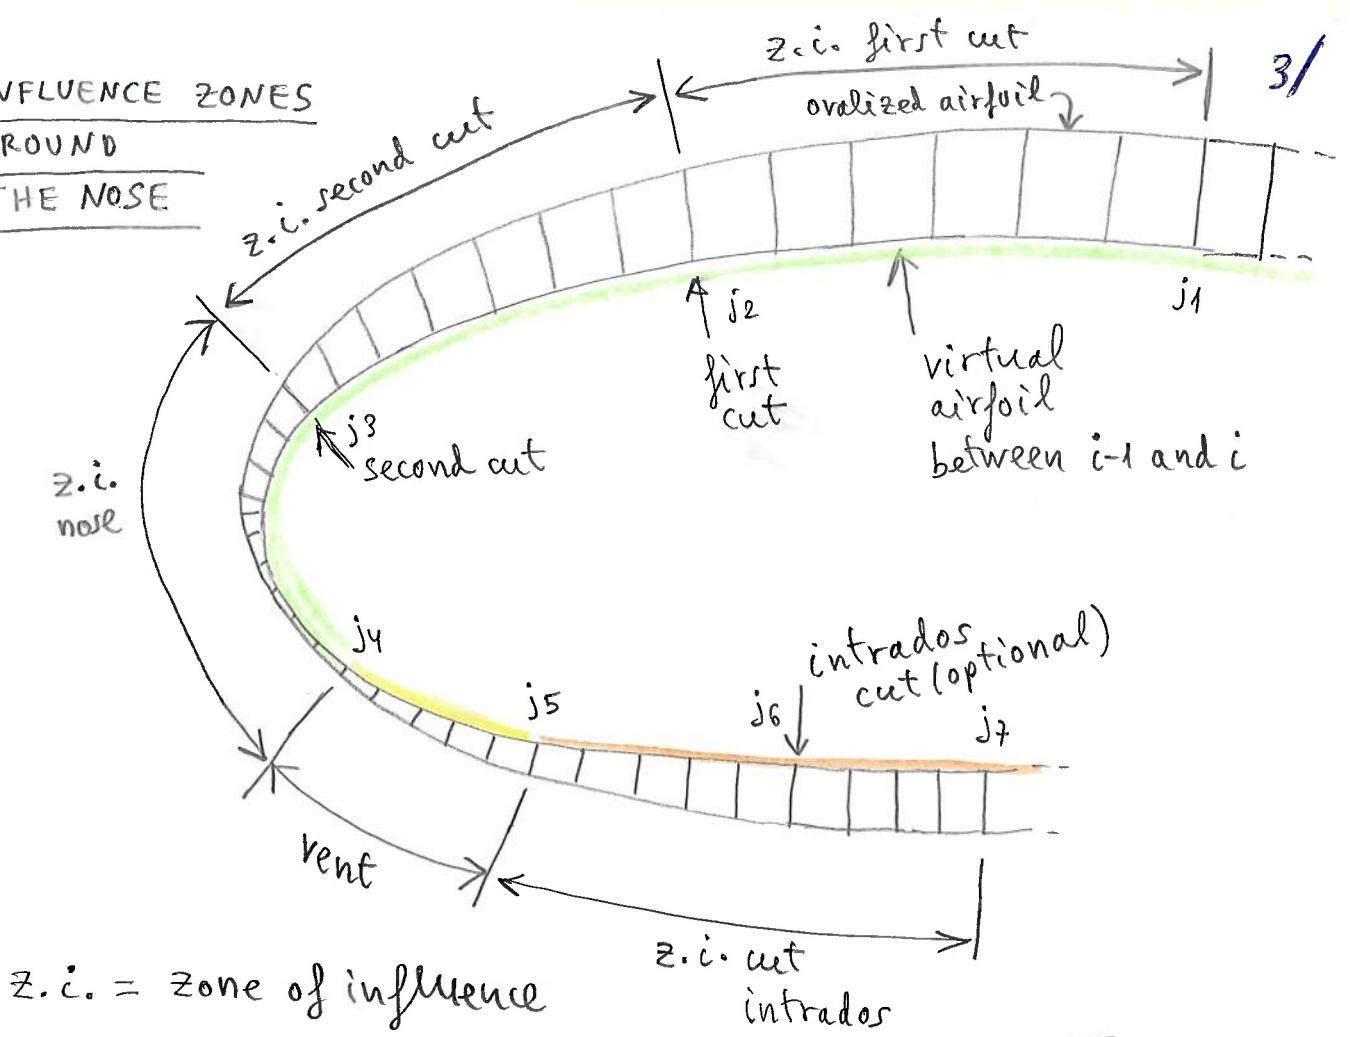 NFLUENCE ZONES
ROUND
THE NOSE
z.i. first cut
3/
ovalized airfoil
z.i. second cut
j2
j1
first
cut
virtual
airfoil
between i-1 and i
j3
second cut
z.i.
nose
j4
intrados
cut (optional)
j5
j6
j7
vent
z.i. cut
intrados
z.i. = zone of influence